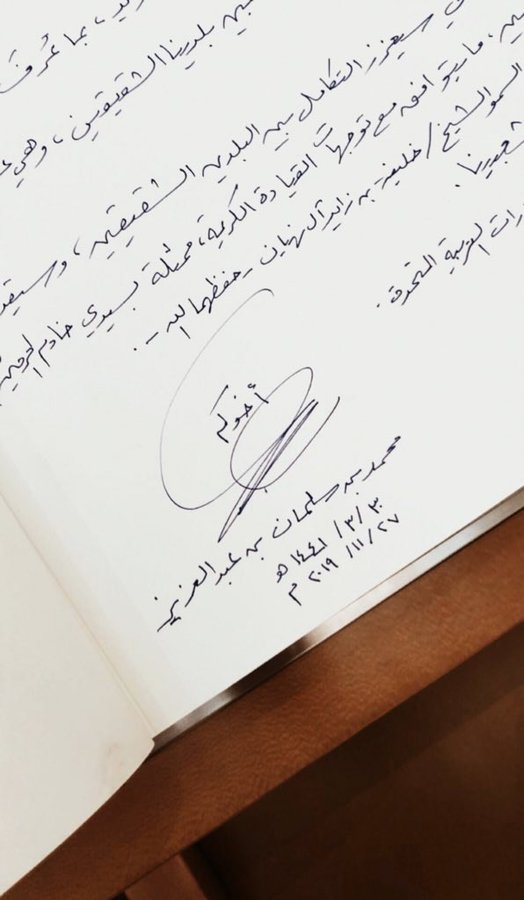 بما عُرف
بين بلدينا الشقيقين، وهي
سيعزز التكامل بين البلدين الشقيقين، و
ما يتوافق مع توجهات القيادة الكريمة، ممثلة بسيدي خادم الحرمين
السمو الشيخ/ خليفة بن زايد آل نهيان - حفظهما الله -.
العربية المتحدة.
أخوكم
محمد بن سلمان بن عبدالعزيز
٣٠/٣/١٤٤١ هـ
٢٧/١١/٢٠١٩ م